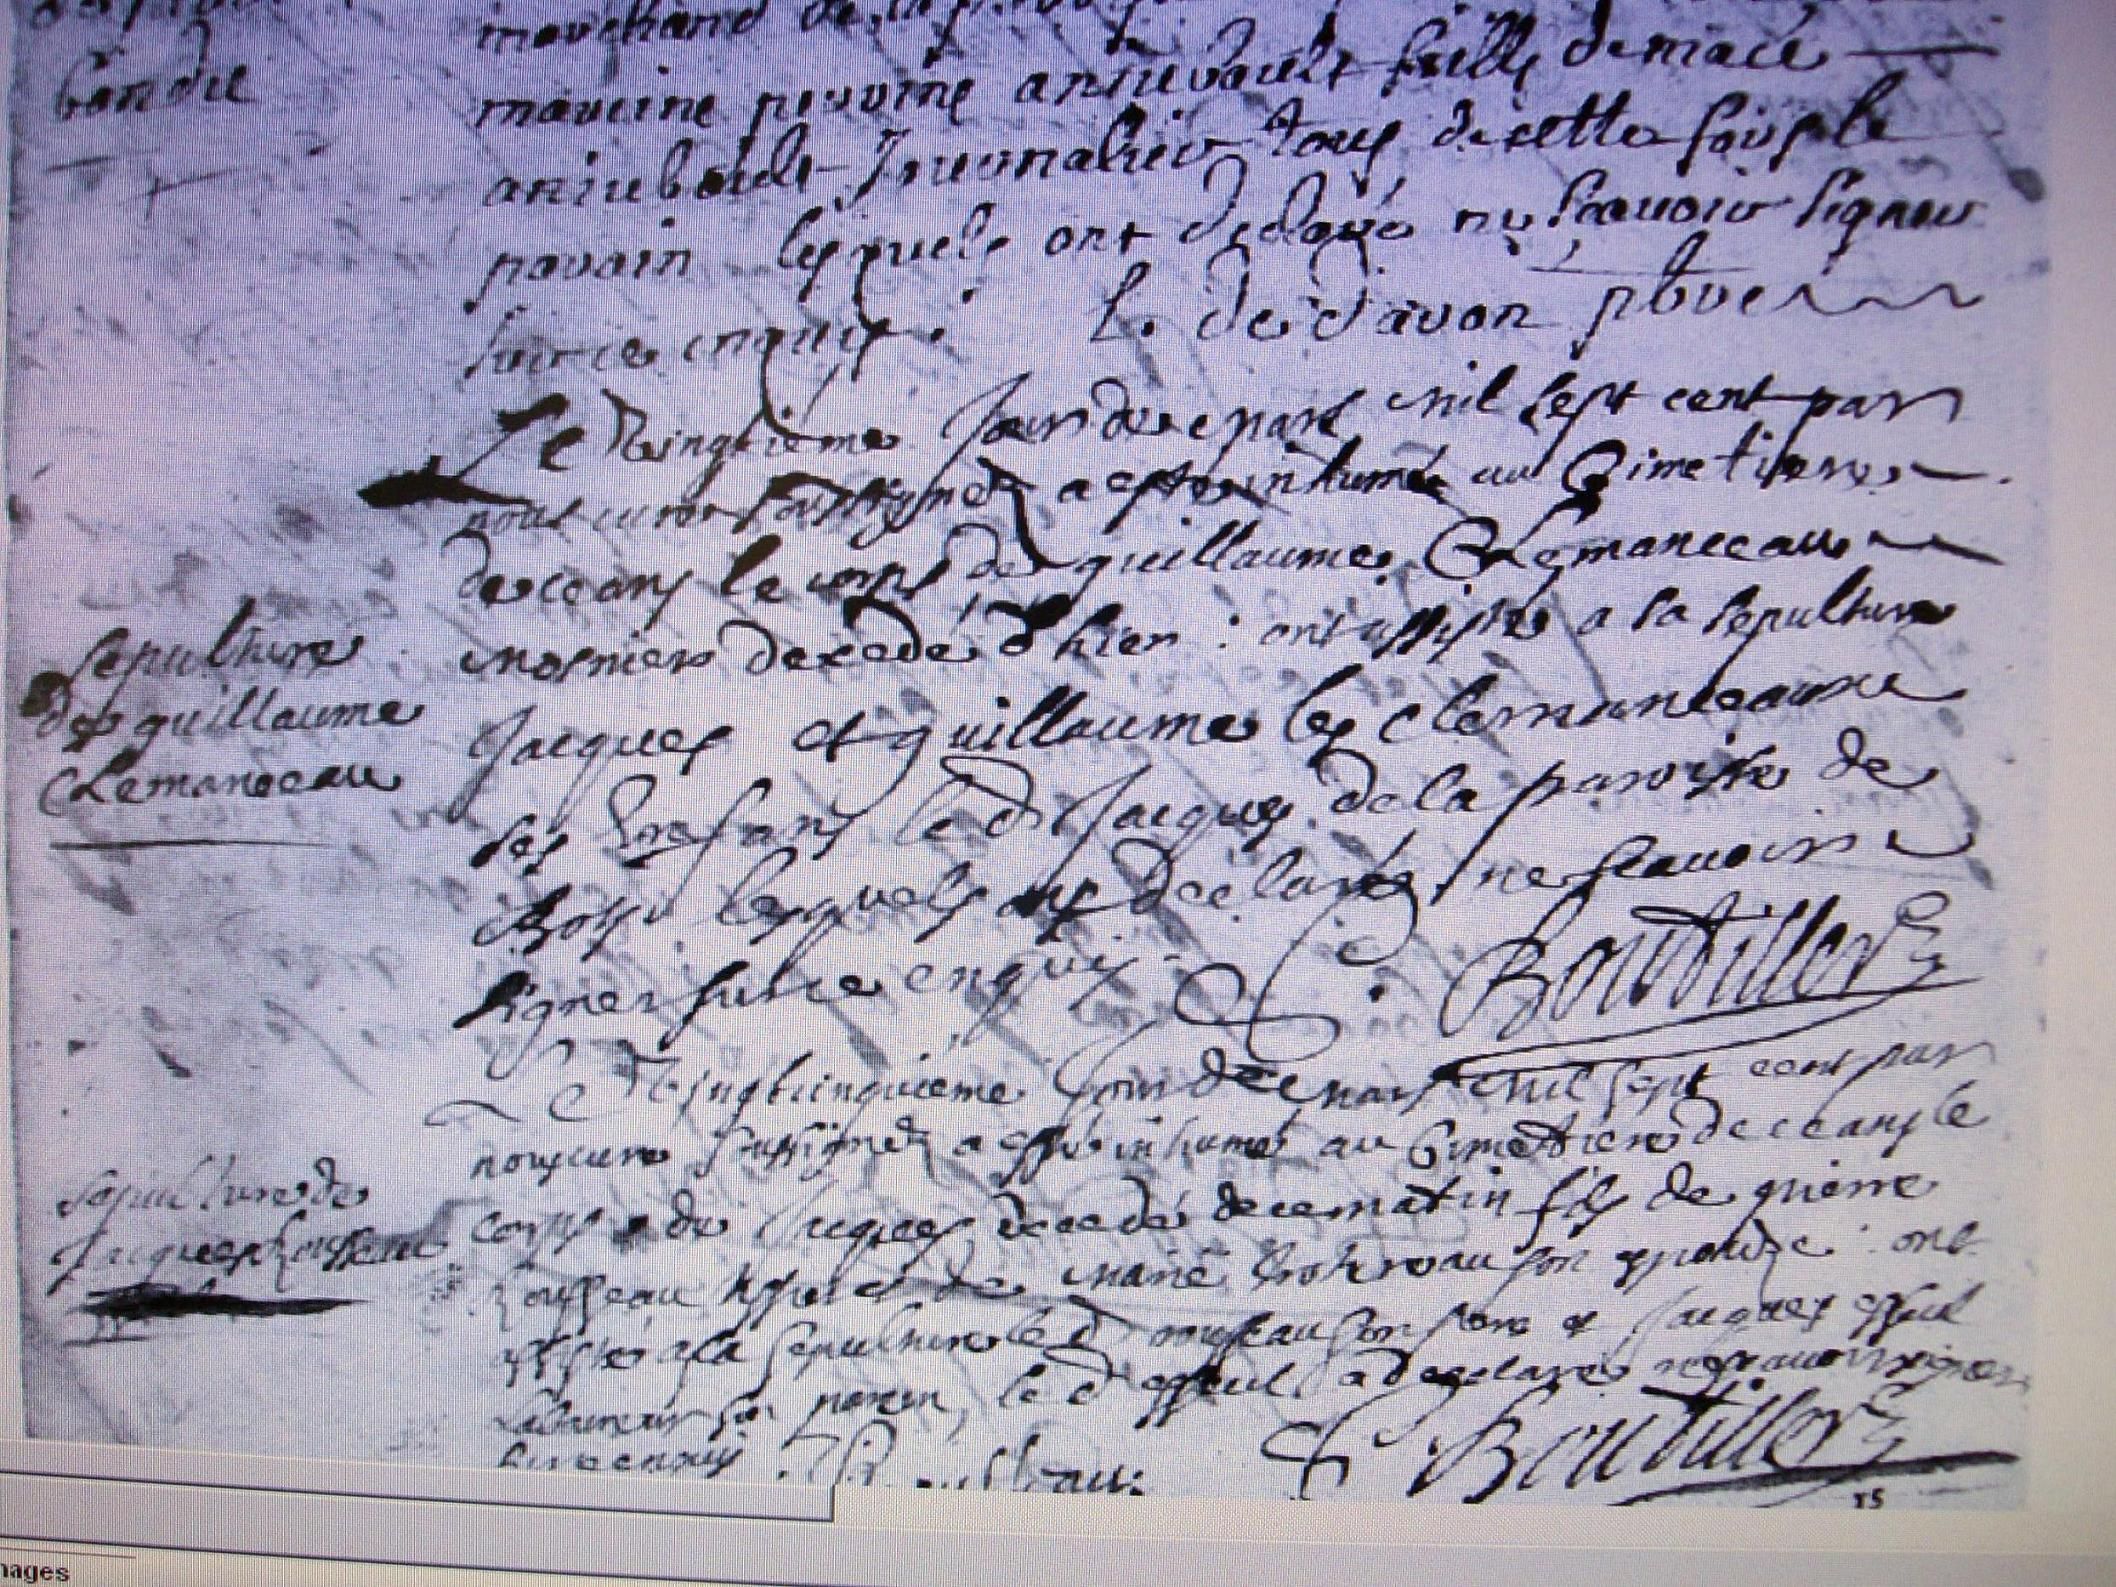 marchand de
maraine perrine anjubault fille de macé
anjubault Journalier tous de cette
parain lesquels ont declaré ne scavoir signer
de ce enquis. L. deidavon pbre
Le Vingtieme Jour de mars mil sept cent par
nous curé soussigné a esté inhumé au Cimetiere
de ceans le corps de guillaume Clemanceau
mosnier decedé d'hier : ont assisté a la sepulture
Jacques et guillaume les clemanceaux
ses Enfans le d Jacques de la paroisse de
lesquels ont declaré ne scavoir
signer sur ce enquis. C. Boutiller
sepulture
de guillaume
Clemanceau
Le Vingtcinquieme Jour de mars mil sept cent par
nous curé soussigné a esté inhumé au Cimetiere de ceans le
corps de Jacques decedé de ce matin fils de pierre
Rousseau et de marie son epouze ont
assisté a la sepulture le d rousseau son pere et Jacques
Laboureur son parein, le d a declaré ne scavoir signer
sur ce enquis. Rousseau. C. Boutiller
Sepulture de
Jacques Rousseau
15
nages